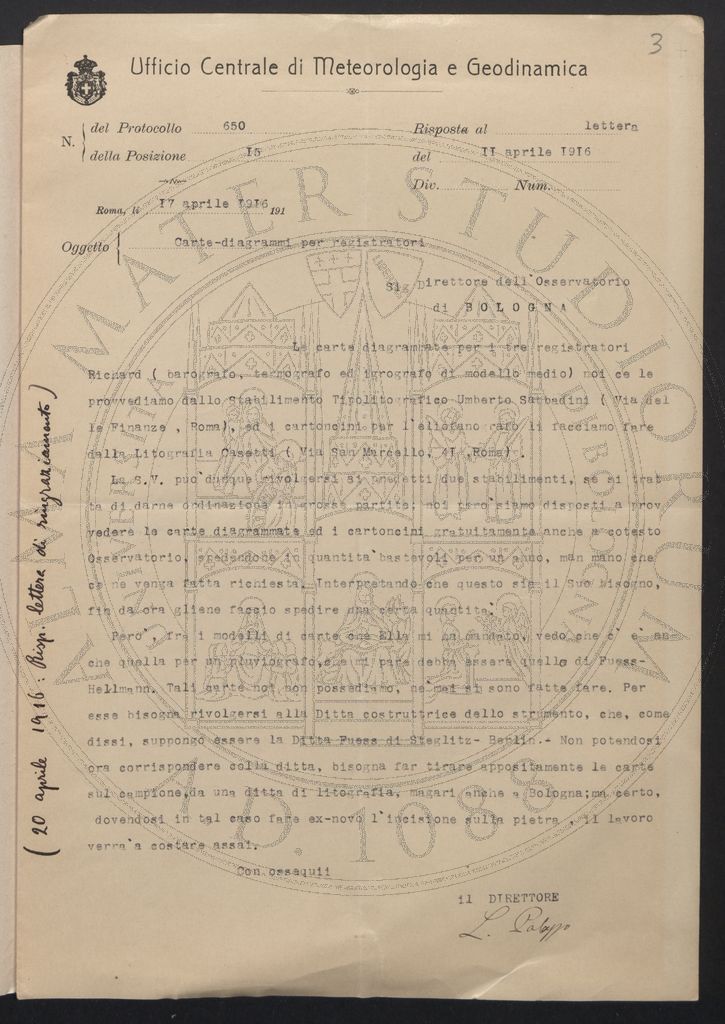 3
Ufficio Centrale di Meteorologia e Geodinamica
N. del Protocollo 650
della Posizione I5
Risposta al lettera
del II aprile I9I6
Div. Num.
Roma, li I7 aprile I9I6 191
Oggetto Carte-diagrammi per registratori
Sig Direttore dell'Osservatorio
di BOLOGNA
Le carte diagrammate per i tre registratori
Richard ( barografo, termografo ed igrografo di modello medio) noi ce le
provvediamo dallo Stabilimento Tipolitografico Umberto Sabbadini ( Via del
le Finanze , Roma), ed i cartoncini per l'eliofanografo li facciamo fare
dalla Litografia Casetti ( Via San Marcello, 4I ,Roma).
La S.V. puo' dunque rivolgersi ai predetti due stabilimenti, se si trat
ta di darne ordinazione in grosse partite; noi pero' siamo disposti a prov
vedere le carte diagrammate ed i cartoncini gratuitamente anche a cotesto
Osservatorio, spedandone in quantita' bastevoli per un anno, man mano che
ce ne venga fatta richiesta. Interpretando che questo sia il Suo bisogno,
fin da ora gliene faccio spedire una certa quantita'.
Pero', fra i modelli di carte che Ella mi ha mandato, vedo che c' e' an
che quella per un pluviografo,che mi pare debba essere quello di Fuess-
Hellmann. Tali carte noi non possediamo, ne' mai si sono fatte fare. Per
esse bisogna rivolgersi alla Ditta costruttrice dello strumento, che, come
dissi, suppongo essere la Ditta Fuess di Steglitz- Berlin.- Non potendosi
ora corrispondere colla ditta, bisogna far tirare appositamente le carte
sul campione,da una ditta di litografia, magari anche a Bologna;ma certo,
dovendosi in tal caso fare ex-novo l'incisione sulla pietra , il lavoro
verra' a costare assai.
Con ossequii
il DIRETTORE
L. Palazzo
( 20 aprile 1916: Risp. lettera di ringraziamento )
ALMA MATER STUDIORUM
A.D. 1088